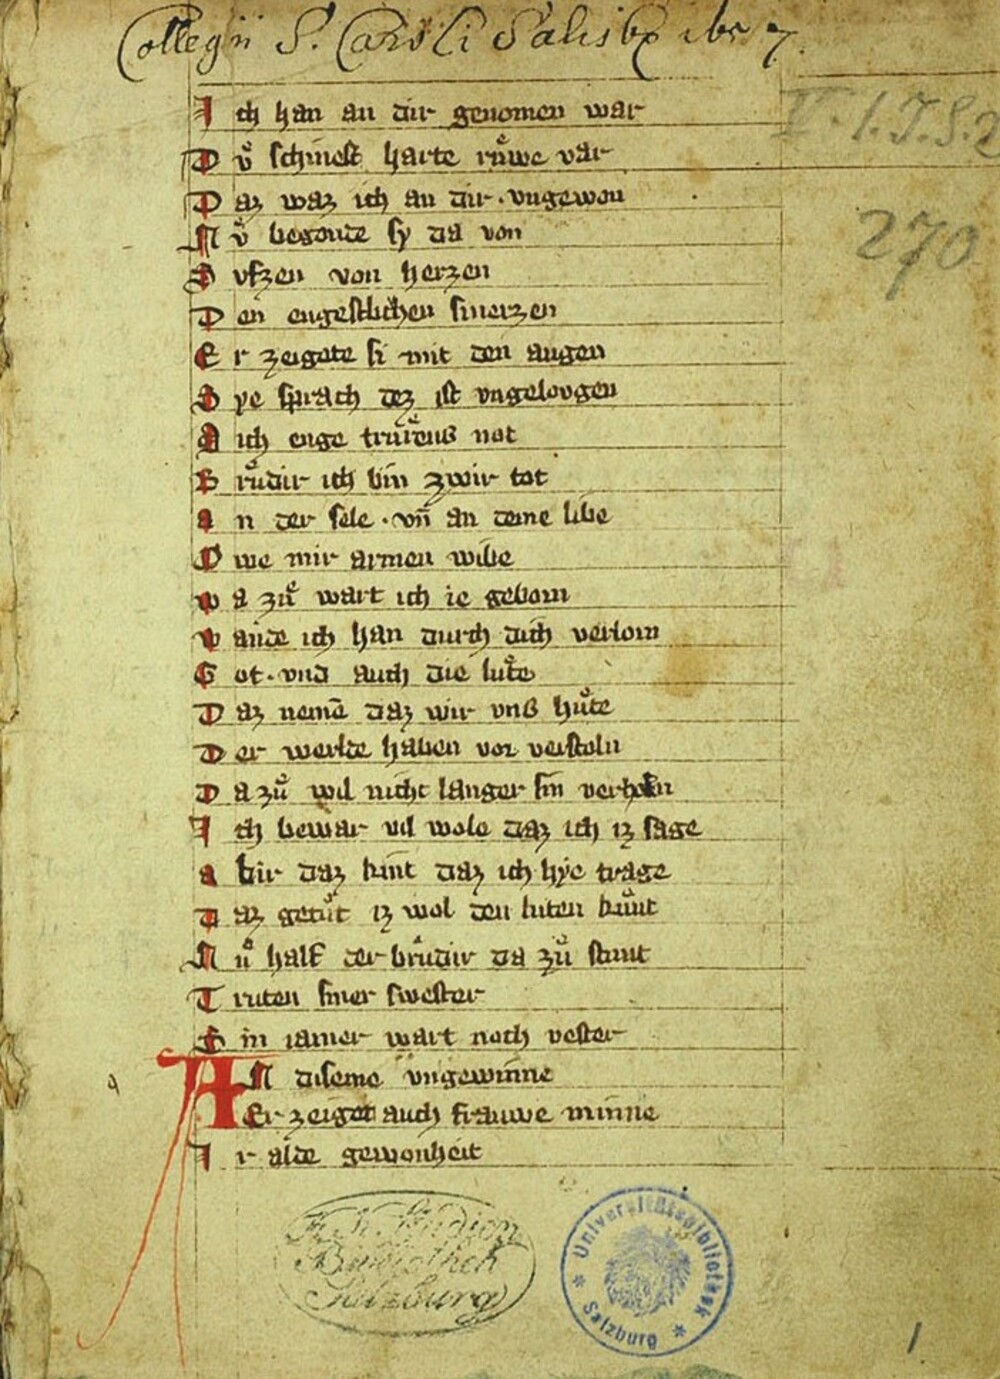 Collegii S. Caroli Salisb
V. 1. J. S. 2
270
Ich han an dir genomen war
Dů schinest harte růwe var
Daz waz ich an dir · vngewon
Nů begonde sy da von
Sufzen von herzen
Den engestlichen smerzen
Er zeigete si mit den augen
Sye sprach dez ist vngelovgen
Mich enge trurens not
Brůdir ich bin zwir tot
an der sele · vn̄ an deme libe
Owe mir armen wibe
wa zů wart ich ie geborn
wande ich han durch dich verlorn
Got · vnd auch die lute
Daz nemē daz wir vnß hute
Der werlde haben vor verstoln
Dazů wil nicht langer sin verholn
Ich bewar vil wole daz ich iz sage
abir daz kint daz ich hye trage
Daz getůt iz wol den luten kunt
Nů half der brůdir da zů stunt
Truten siner swester
Sin iamer wart noch vester
AN diseme vngewinne
Er zeiget auch frauwe minne
Ir alde gewonheit
K. K. Studien
Bibliothek
Salzburg
* Universitätsbibliothek * Salzburg
1